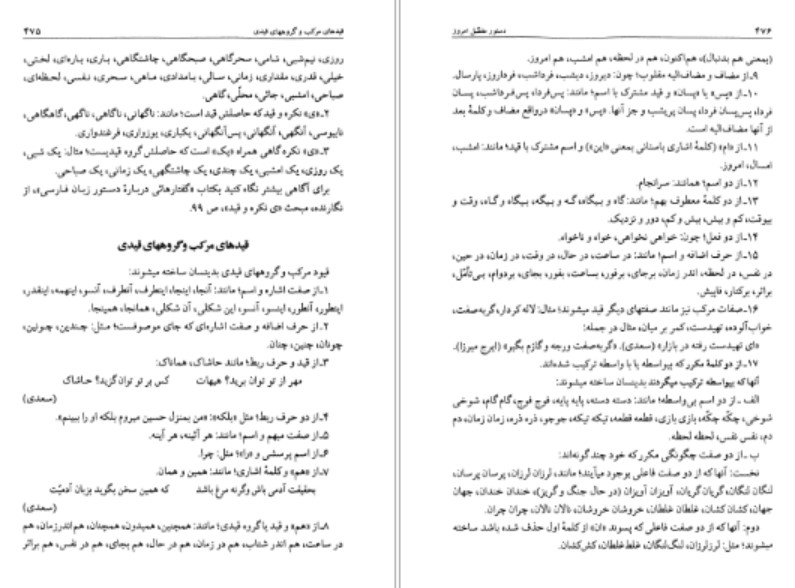 قیدهای مرکب و گروههای قیدی ۴۷۵
روزی، نیم‌شبی، شامی، سحرگاهی، صبحگاهی، چاشتگاهی، باری، پاره‌ای، لختی،
خیلی، قدری، مقداری، زمانی، سالی، بامدادی، ماهی، سحری، نفسی، لحظه‌ای،
صباحی، امشبی، جائی، محلّی، گاهی.
۲ـ «ی» نکره و قید که حاصلش قید است؛ مانند: ناگهانی، ناگاهی، ناگهی، گاهگاهی،
نابیوسی، آنگهی، آنگهانی، پس‌آنگهانی، یکباری، یوزواری، فرغندواری.
۳ـ «ی» نکره گاهی همراه «یک» است که حاصلش گروه قیدیست؛ مثال: یک شبی،
یک روزی، یک امشبی، یک چندی، یک چاشتگهی، یک زمانی، یک صباحی.
برای آگاهی بیشتر نگاه کنید بکتاب «گفتارهائی دربارهٔ دستور زبان فارسی»، از
نگارنده، مبحث «ی نکره و قید»، ص ۹۹.
قیدهای مرکب و گروههای قیدی
قیود مرکب و گروههای قیدی بدینسان ساخته میشوند:
۱ـ از صفت اشاره و اسم؛ مانند: آنجا، اینجا، اینطرف، آنطرف، آنسو، اینهمه، اینقدر،
اینطور، آنطور، اینسو، آنسو، این شکلی، آن شکلی، همانجا، همینجا.
۲ـ از حرف اضافه و صفت اشاره‌ای که جای موصوفست؛ مثل: چندین، چونین،
چونان، چنین، چنان.
۳ـ از قید و حرف ربط؛ مانند حاشاک، هماناک:
مهر از تو توان برید؟ هیهات کس بر تو توان گزید؟ حاشاک
(سعدی)
۴ـ از دو حرف ربط؛ مثل «بلکه»: «من بمنزل حسین میروم بلکه او را ببینم».
۵ـ از صفت مبهم و اسم؛ مانند: هر آئینه، هر آینه.
۶ـ از اسم پرسشی و «را»؛ مثل: چرا.
۷ـ از «هم» و کلمهٔ اشاری؛ مانند: همین و همان.
بحقیقت آدمی باش وگرنه مرغ باشد که همین سخن بگوید بزبان آدمیّت
(سعدی)
۸ـ از «هم» و قید یا گروه قیدی؛ مانند: همچنین، همیدون، همچنان، هم اندر زمان، هم
در ساعت، هم اندر شتاب، هم در زمان، هم در حال، هم بجای، هم در نفس، هم برابر
۴۷۶ دستور مفصّل امروز
(بمعنی هم بدنبال)، هم اکنون، هم در لحظه، هم امشب، هم امروز.
۹ـ از مضاف و مضاف‌الیه مقلوب؛ چون: دیروز، دیشب، فرداشب، فرداروز، پارسال.
۱۰ـ از «پس» یا «پسان» و قید مشترک با اسم؛ مانند: پس‌فردا، پس‌فرداشب، پسان
فردا، پس‌پسان فردا، پسان پریشب و جز آنها. «پس» و «پسان» درواقع مضاف و کلمهٔ بعد
از آنها مضاف‌الیه است.
۱۱ـ از «ام» (کلمهٔ اشاری باستانی بمعنی «این») و اسم مشترک با قید؛ مانند: امشب،
امسال، امروز.
۱۲ـ از دو اسم؛ همانند: سرانجام.
۱۳ـ از دو کلمهٔ معطوف بهم؛ مانند: گاه و بیگاه، گه و بیگه، بیگاه و گاه، وقت و
بیوقت، کم و بیش، بیش و کم، دور و نزدیک.
۱۴ـ از دو فعل؛ چون: خواهی نخواهی، خواه و ناخواه.
۱۵ـ از حرف اضافه و اسم؛ مانند: در ساعت، در حال، در وقت، در زمان، در حین،
در نفس، در لحظه، اندر زمان، برجای، برفور، بساعت، بفور، بجای، بردوام، بی‌تأمّل،
برابر، برکنار، فاپیش.
۱۶ـ صفات مرکب نیز مانند صفتهای دیگر قید میشوند؛ مثال: لاله کردار، گربه‌صفت،
خواب‌آلوده، تهیدست، کمر بر میان، مثال در جمله:
«ای تهیدست رفته در بازار» (سعدی). «گربه‌صفت ورجه و گازم بگیر» (ایرج میرزا).
۱۷ـ از دو کلمهٔ مکرر که بیواسطه یا با واسطه ترکیب شده‌اند.
آنها که بیواسطه ترکیب میگردند بدینسان ساخته میشوند:
الف ـ از دو اسم بی‌واسطه؛ مانند: دسته دسته، پایه پایه، فوج فوج، گام گام، شوخی
شوخی، چکّه چکّه، بازی بازی، قطعه قطعه، تیکه تیکه، جوجو، ذره ذره، زمان زمان، دم
دم، نفس نفس، لحظه لحظه.
ب ـ از دو صفت چگونگی مکرر که خود چند گونه‌اند:
نخست: آنها که از دو صفت فاعلی بوجود میآیند؛ مانند، لرزان لرزان، پرسان پرسان،
لنگان لنگان، گریان گریان، آویزان آویزان (در حال جنگ و گریز) خندان خندان، جهان
جهان، کشان کشان، غلطان غلطان، خروشان خروشان، نالان نالان، چران چران.
دوم: آنها که از دو صفت فاعلی که پسوند «ان» از کلمهٔ اول حذف شده باشد ساخته
میشوند؛ مثل: لرزلرزان، لنگ‌لنگان، غلط‌غلطان، کش‌کشان.